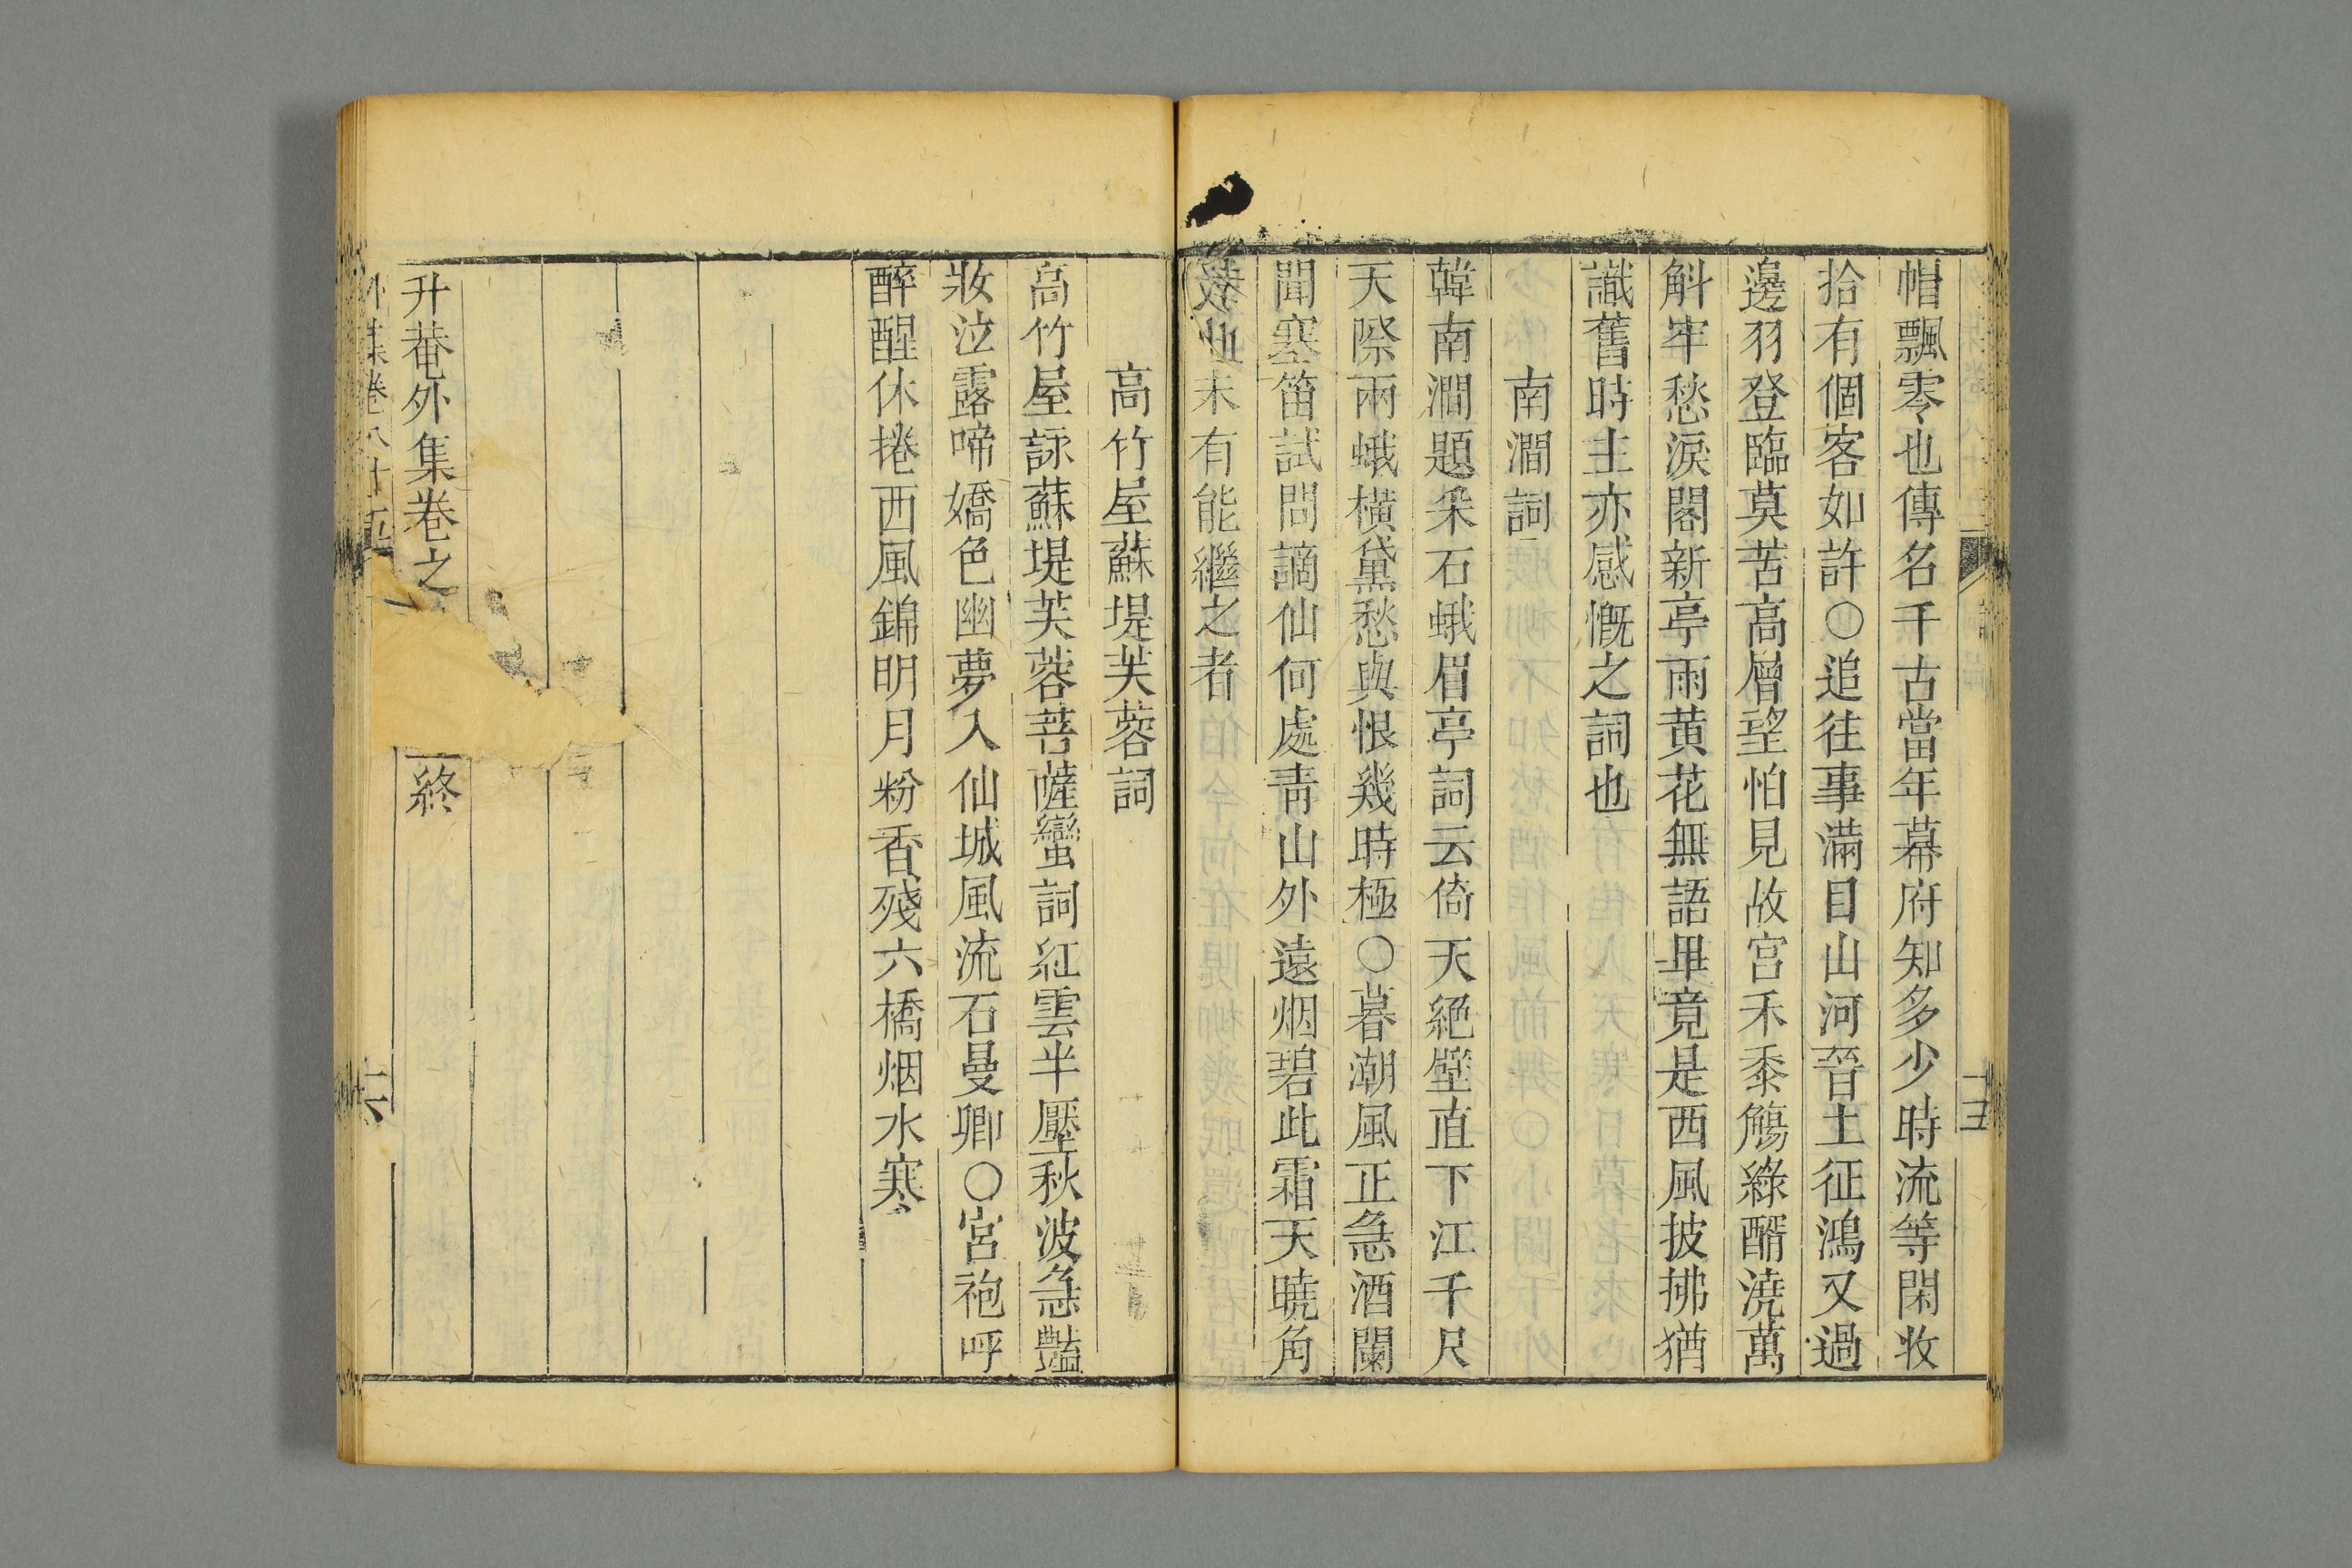 帽飄零也傳名千古當年幕府知多少時流等閑收
拾有個客如許○追往事滿目山河晉土征鴻又過
邊羽登臨莫苦高層望怕見故宮禾黍觴綠醑澆萬
斛牢愁淚閣新亭雨黄花無語畢竟是西風披拂猶
識舊時主亦感慨之詞也
南澗詞
韓南澗題采石蛾眉亭詞云倚天絕壁直下江千尺
天際兩蛾橫黛愁與恨幾時極○暮潮風正急酒闌
聞塞笛試問謫仙何處青山外遠烟碧此霜天曉角
也未有能繼之者
十五
高竹屋蘇堤芙蓉詞
高竹屋詠蘇堤芙蓉菩薩蠻詞紅雲半壓秋波急豔
妝泣露啼嬌色幽夢入仙城風流石曼卿○宮袍呼
醉醒休捲西風錦明月粉香殘六橋烟水寒
升菴外集卷之
終
外集卷八十五
十六